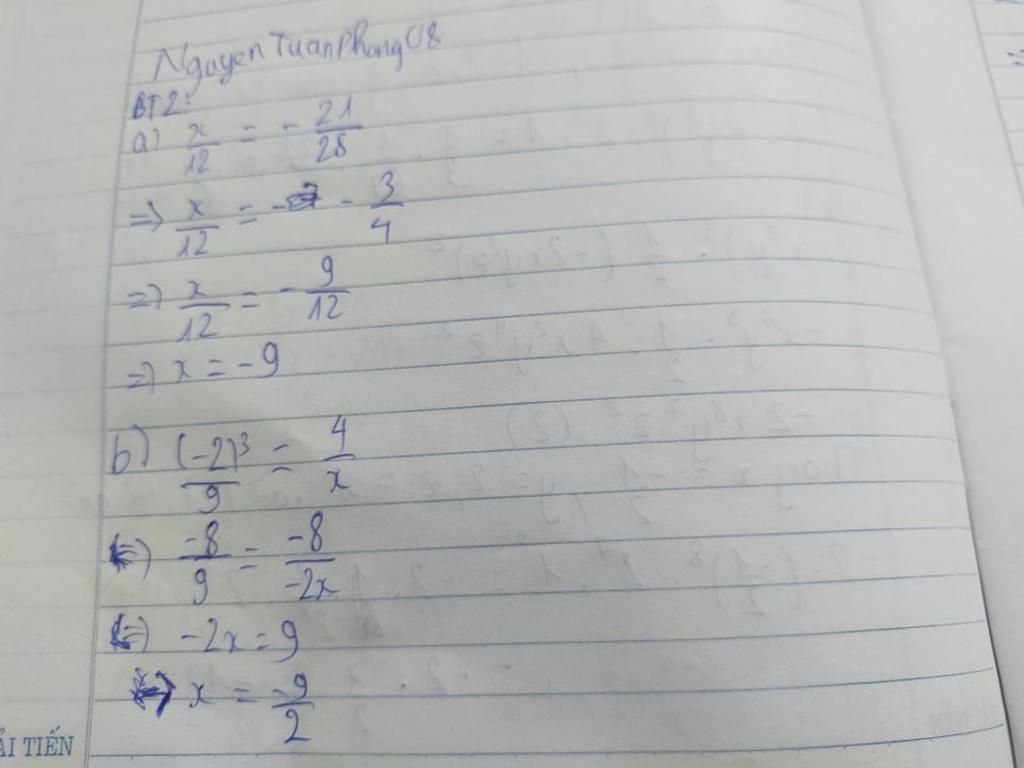 Nguyen Tuan Phong C8
BT2:
a) x/12 = - 21/28
=> x/12 = - 3/4
=> x/12 = - 9/12
=> x = -9
b) (-2)³/9 = 4/x
-8/9 = -8/-2x
-2x = 9
x = -9/2
ẢI TIẾN